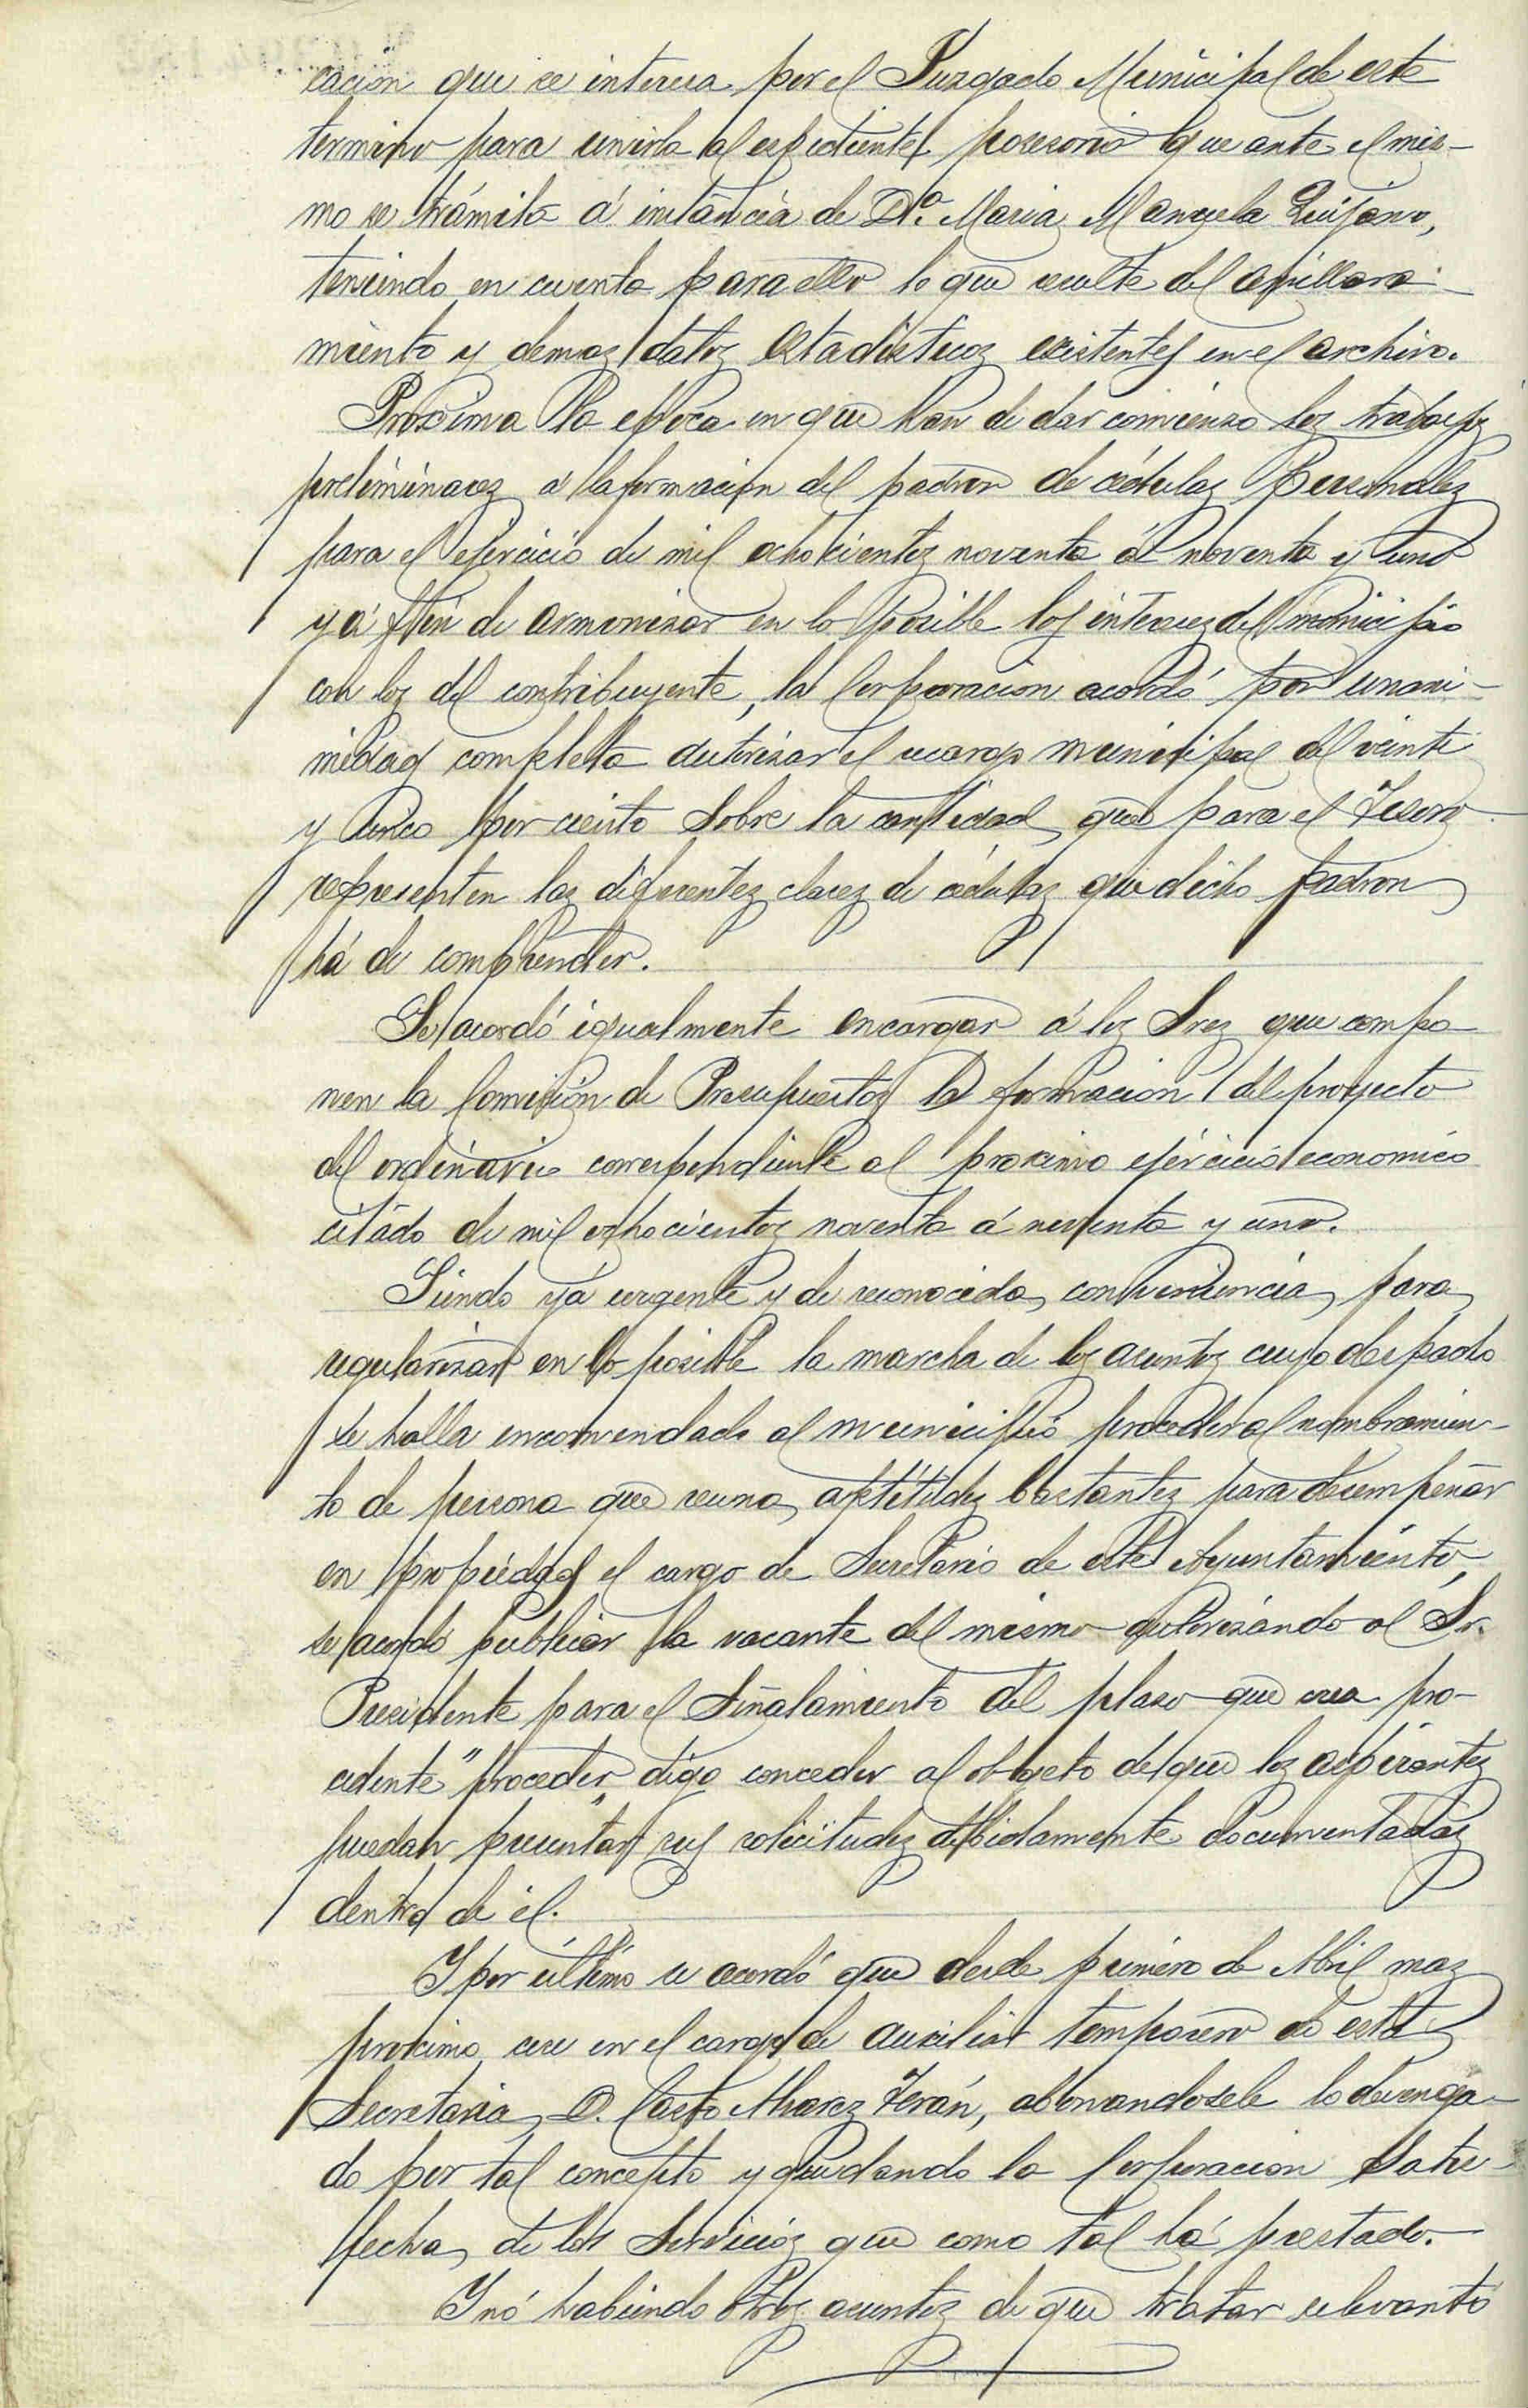 cación que se interesa por el Juzgado Municipal de este
termino para unirla al espediente posesorio que ante el mis-
mo se trámita á instáncia de Dª. Maria Manuela Quijano,
teniendo en cuenta para ello lo que resulte del amillara-
miento y demas datos estadisticos existentes en el archivo.
Proxima la epoca en que han de dar comienzo los trabajos
preliminares á la formacion del padron de cédulas Personales
para el ejercicio de mil ochocientos noventa á noventa y uno
y á fin de armonizar en lo posible los intereses del municipio
con los del contribuyente, la Corporacion acordó por unani-
midad completa autorizar el recargo municipal del veinte
y cinco por ciento sobre la cantidad que para el Tesoro
representen las diferentes clases de cédulas que dicho padron
há de comprender.
Se acordó igualmente encargar á los Sres que compo-
nen la Comisión de Presupuestos la formacion del proyecto
del ordinario correspondiente al proximo ejercicio economico
citádo de mil ochocientos noventa á noventa y uno.
Siendo yá urgente y de reconocida conveniencia para
regularizar en lo posible la marcha de los asuntos cuyo despacho
se halla encomendado al municipio proceder al nombramien-
to de persona que reuna aptitudes bastantes para desempeñar
en propiedad el cargo de Secretario de este Ayuntamiento,
se acordó publicar la vacante del mismo autorizando al Sr.
Presidente para el Señalamiento del plazo que crea pro-
cedente "proceder" digo conceder al objeto de que los aspirantes
puedan presentar sus solicitudes debidamente documentadas
dentro de él.
Y por último se acordó que desde primero de Abril mas
proximo cese en el cargo de auxiliar temporero de esta
Secretaria D. Casto Alvarez Terán, abonandosele lo devenga-
do por tal concepto y quedando la Corporacion Satis-
fecha de los Servicios que como tal há prestado.
Y nó habiendo otros asuntos de que tratar se levantó